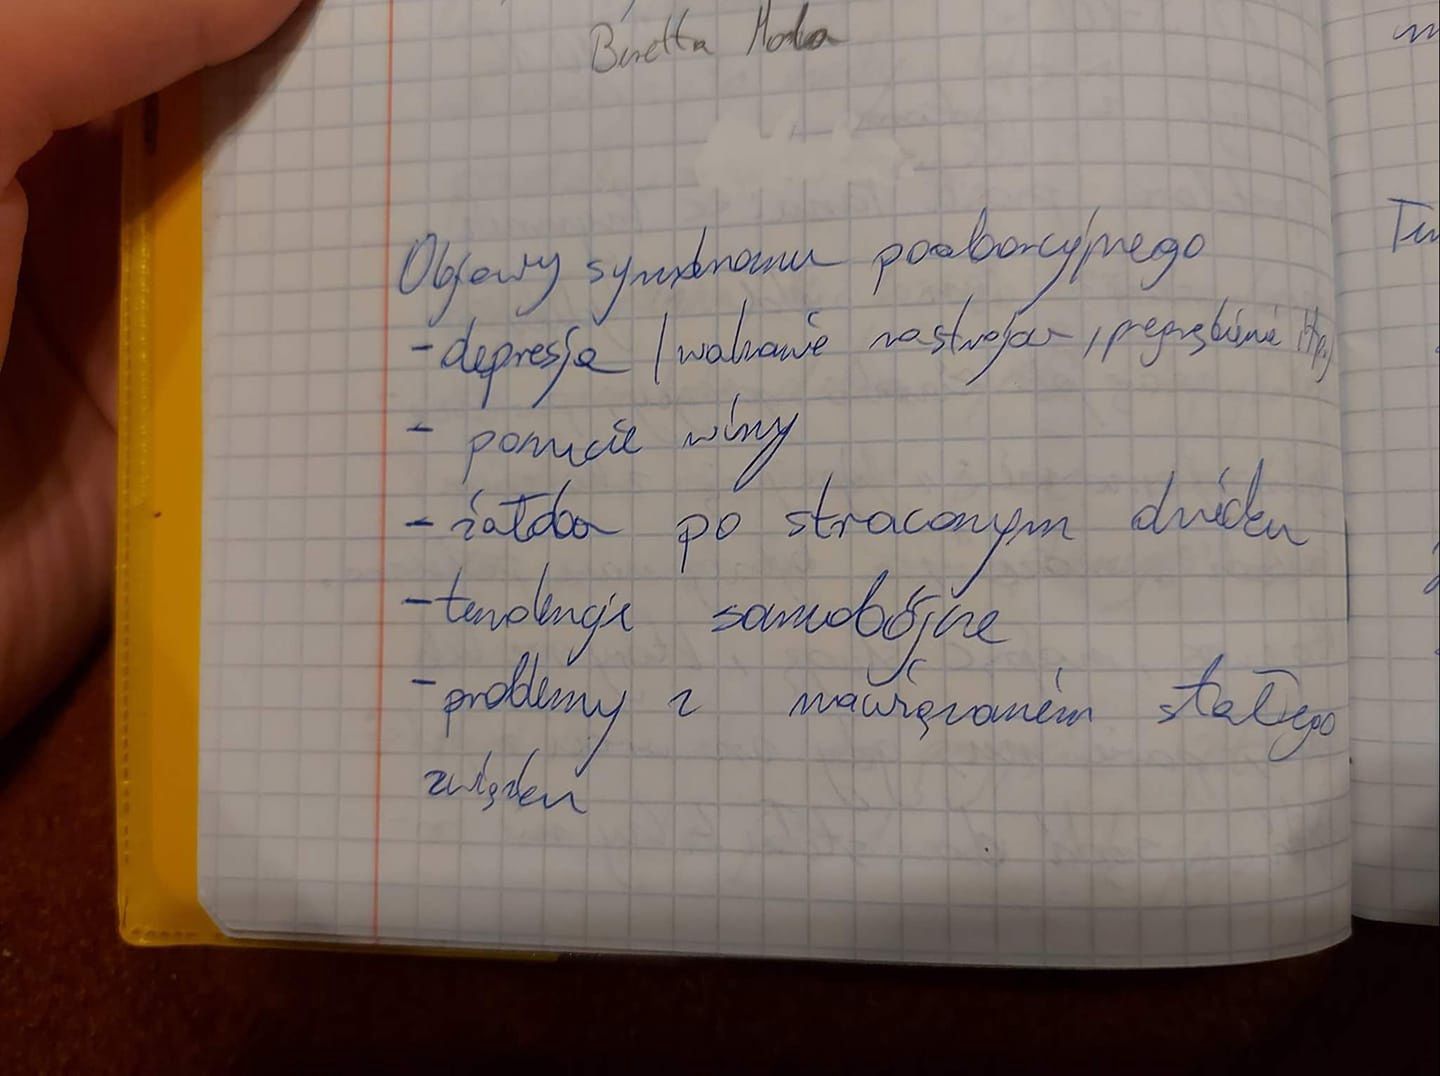 Beretta Molla
Objawy syndromu poaborcyjnego
- depresja / wahanie nastrojów, przygnębienie itp.
- poczucie winy
- żałoba po straconym dziecku
- tendencje samobójcze
- problemy z nawiązaniem stałego
związku